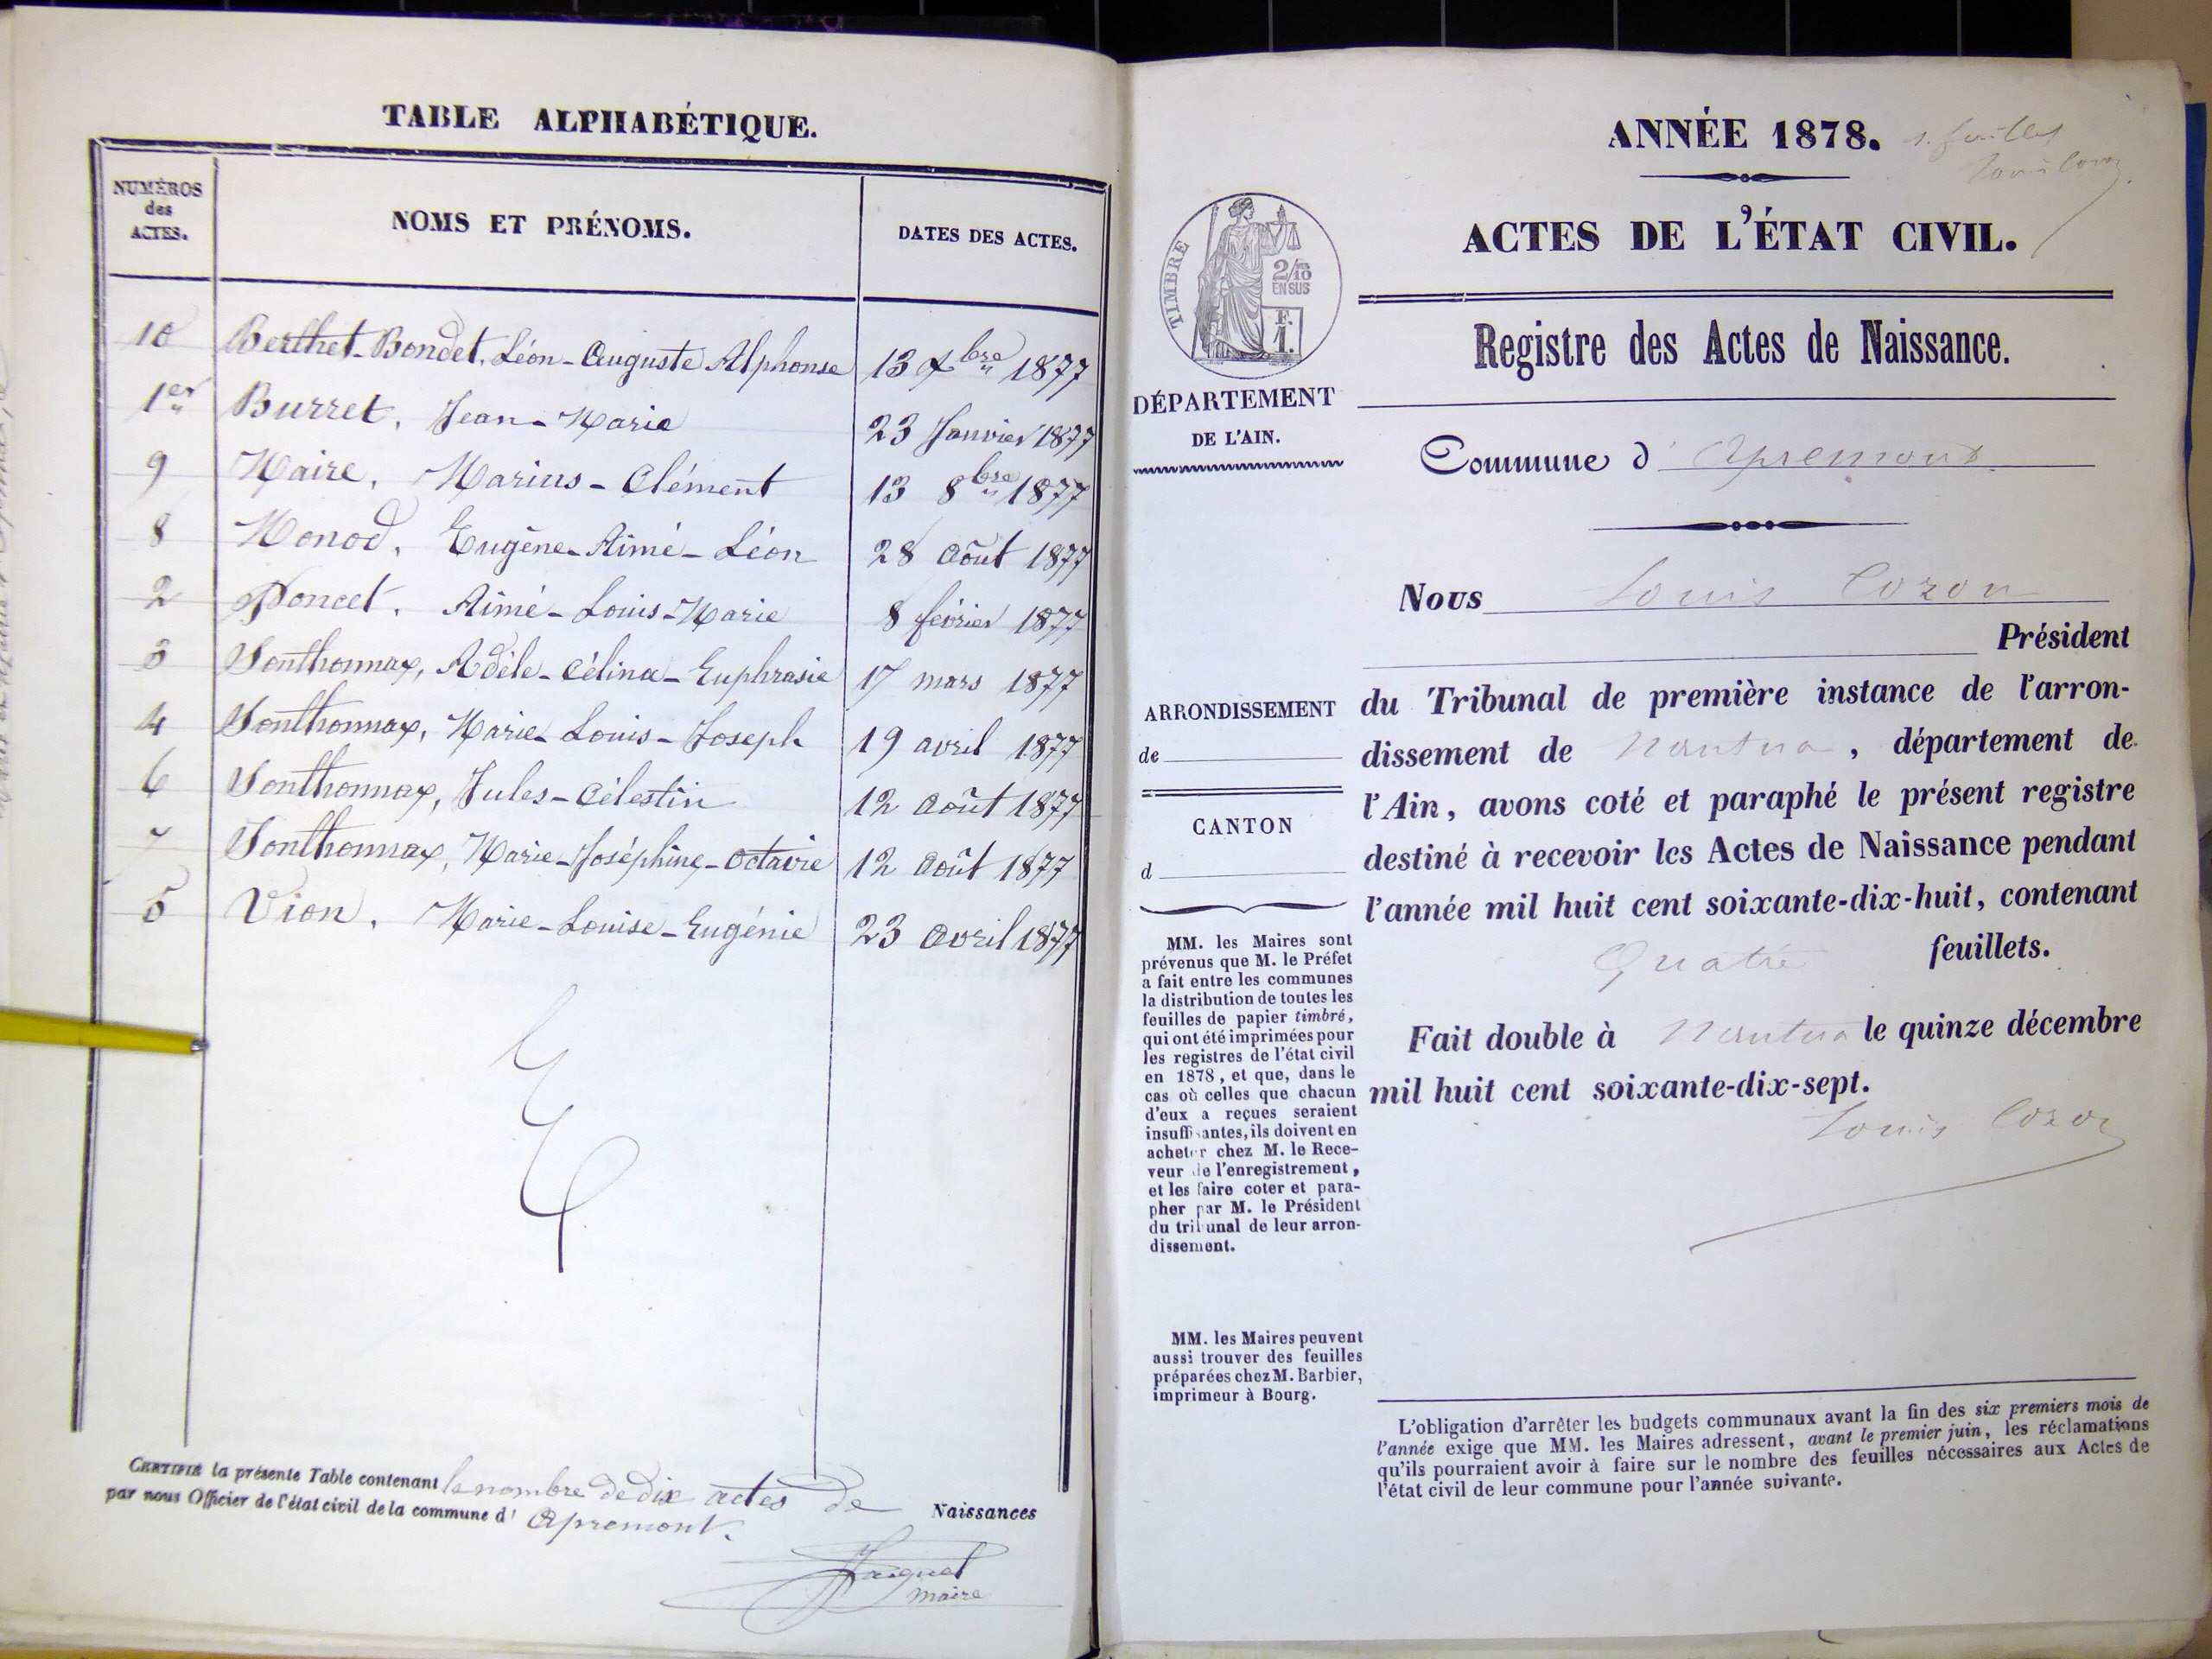 TABLE ALPHABÉTIQUE.
NUMÉROS
des
ACTES.
NOMS ET PRÉNOMS.
DATES DES ACTES.
10 Berthet-Bondet, Léon-Auguste Alphonse 13 Xbre 1877
1er Burret, Jean-Marie 23 Janvier 1877
9 Maire, Marius-Clément 13 8bre 1877
8 Monod, Eugène-Aimé-Léon 28 Août 1877
2 Poncet, Aimé-Louis-Marie 8 février 1877
3 Sonthonnax, Adèle-Célina-Euphrasie 17 mars 1877
4 Sonthonnax, Marie-Louis-Joseph 19 avril 1877
6 Sonthonnax, Jules-Célestin 12 Août 1877
7 Sonthonnax, Marie-Joséphine-Octavie 12 Août 1877
5 Vion, Marie-Louise-Eugénie 23 Avril 1877
CERTIFIÉ la présente Table contenant le nombre de dix actes de Naissances
par nous Officier de l'état civil de la commune d' Apremont.
maire
ANNÉE 1878.
feuillet
Louis Cozon
ACTES DE L'ÉTAT CIVIL.
TIMBRE
2/10
EN SUS
F.
1.
Registre des Actes de Naissance.
DÉPARTEMENT
DE L'AIN.
Commune d' Apremont
Nous Louis Cozon
Président
ARRONDISSEMENT
de
CANTON
d
du Tribunal de première instance de l'arron-
dissement de Nantua, département de
l'Ain, avons coté et paraphé le présent registre
destiné à recevoir les Actes de Naissance pendant
l'année mil huit cent soixante-dix-huit, contenant
Quatre feuillets.
Fait double à Nantua le quinze décembre
mil huit cent soixante-dix-sept.
Louis Cozon
MM. les Maires sont
prévenus que M. le Préfet
a fait entre les communes
la distribution de toutes les
feuilles de papier timbré,
qui ont été imprimées pour
les registres de l'état civil
en 1878, et que, dans le
cas où celles que chacun
d'eux a reçues seraient
insuffisantes, ils doivent en
acheter chez M. le Rece-
veur de l'enregistrement,
et les faire coter et para-
pher par M. le Président
du tribunal de leur arron-
dissement.
MM. les Maires peuvent
aussi trouver des feuilles
préparées chez M. Barbier,
imprimeur à Bourg.
L'obligation d'arrêter les budgets communaux avant la fin des six premiers mois de
l'année exige que MM. les Maires adressent, avant le premier juin, les réclamations
qu'ils pourraient avoir à faire sur le nombre des feuilles nécessaires aux Actes de
l'état civil de leur commune pour l'année suivante.